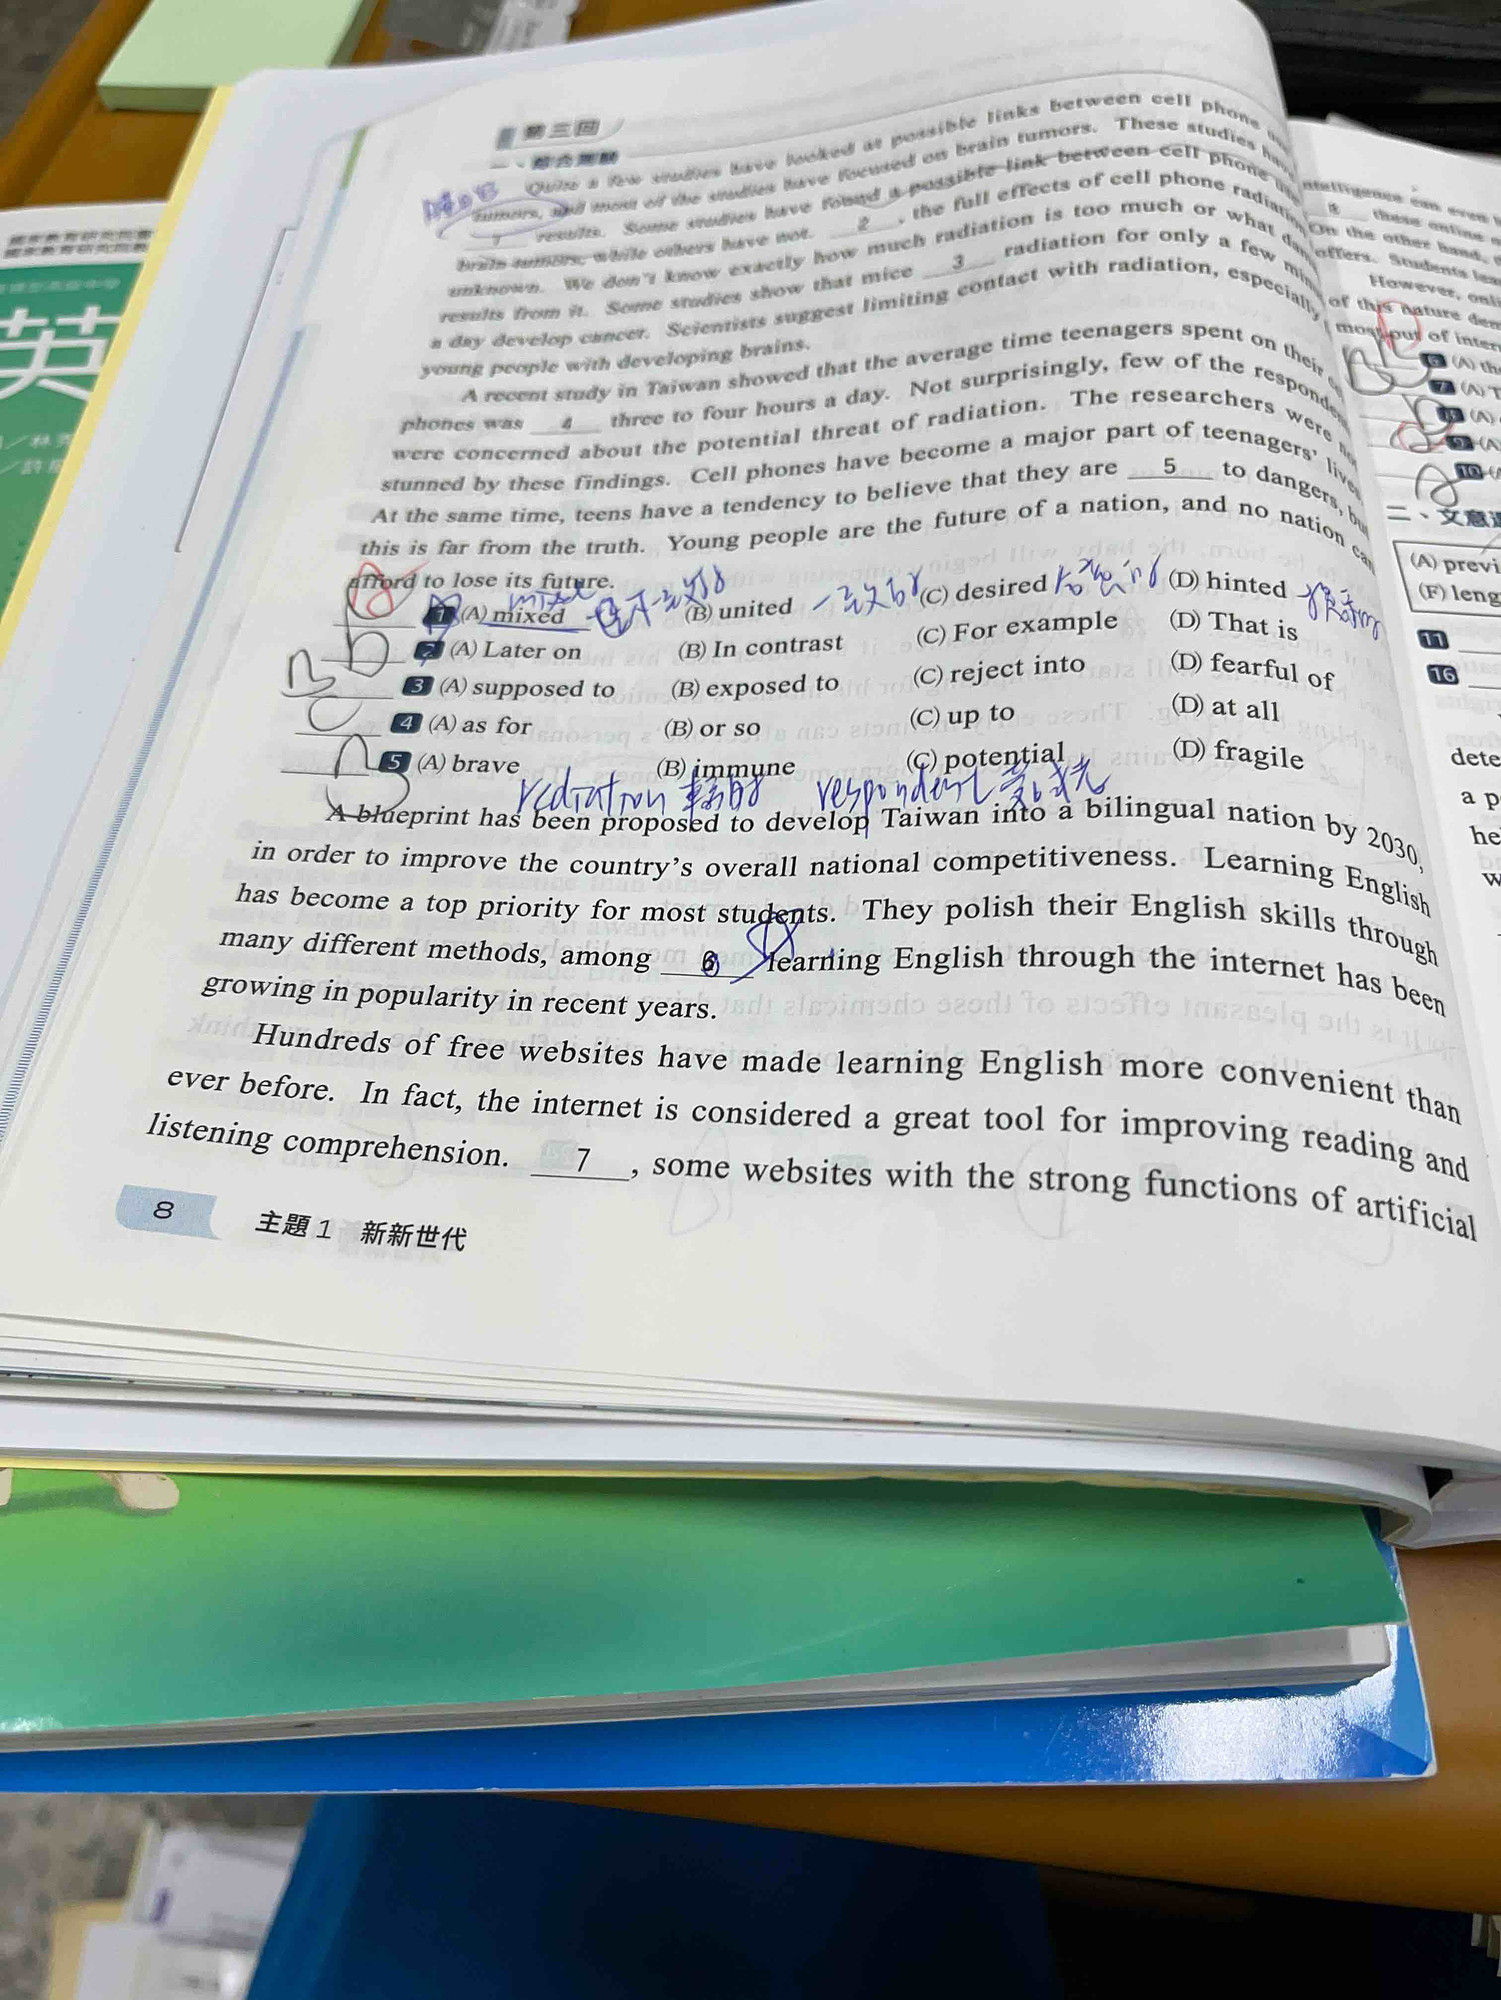 第三回
一、綜合測驗
Quite a few studies have looked at possible links between cell phone
tumors, and most of the studies have focused on brain tumors. These studies have
1 results. Some studies have found a possible link between cell phone use
brain tumors, while others have not. 2 , the full effects of cell phone radiation
unknown. We don't know exactly how much radiation is too much or what
results from it. Some studies show that mice 3 radiation for only a few
a day develop cancer. Scientists suggest limiting contact with radiation, especially
young people with developing brains.
A recent study in Taiwan showed that the average time teenagers spent on their
phones was 4 three to four hours a day. Not surprisingly, few of the
were concerned about the potential threat of radiation. The researchers were
stunned by these findings. Cell phones have become a major part of teenagers' lives.
At the same time, teens have a tendency to believe that they are 5 to dangers, but
this is far from the truth. Young people are the future of a nation, and no nation
afford to lose its future.
mixed
1 (A) mixed (B) united 一致的 (C) desired (D) hinted
2 (A) Later on (B) In contrast (C) For example (D) That is
3 (A) supposed to (B) exposed to (C) reject into (D) fearful of
4 (A) as for (B) or so (C) up to (D) at all
5 (A) brave (B) immune (C) potential (D) fragile
radiation respondent
A blueprint has been proposed to develop Taiwan into a bilingual nation by 2030,
in order to improve the country's overall national competitiveness. Learning English
has become a top priority for most students. They polish their English skills through
many different methods, among 6 learning English through the internet has been
growing in popularity in recent years.
Hundreds of free websites have made learning English more convenient than
ever before. In fact, the internet is considered a great tool for improving reading and
listening comprehension. 7 , some websites with the strong functions of artificial
8 主題1 新新世代
intelligence can even
these online
On the other hand,
offers. Students
However,
of this nature
most out of
6 (A)
7 (A)
(A)
9 (A)
10
二、文意
(A)
(F)
11
16
a
he
英